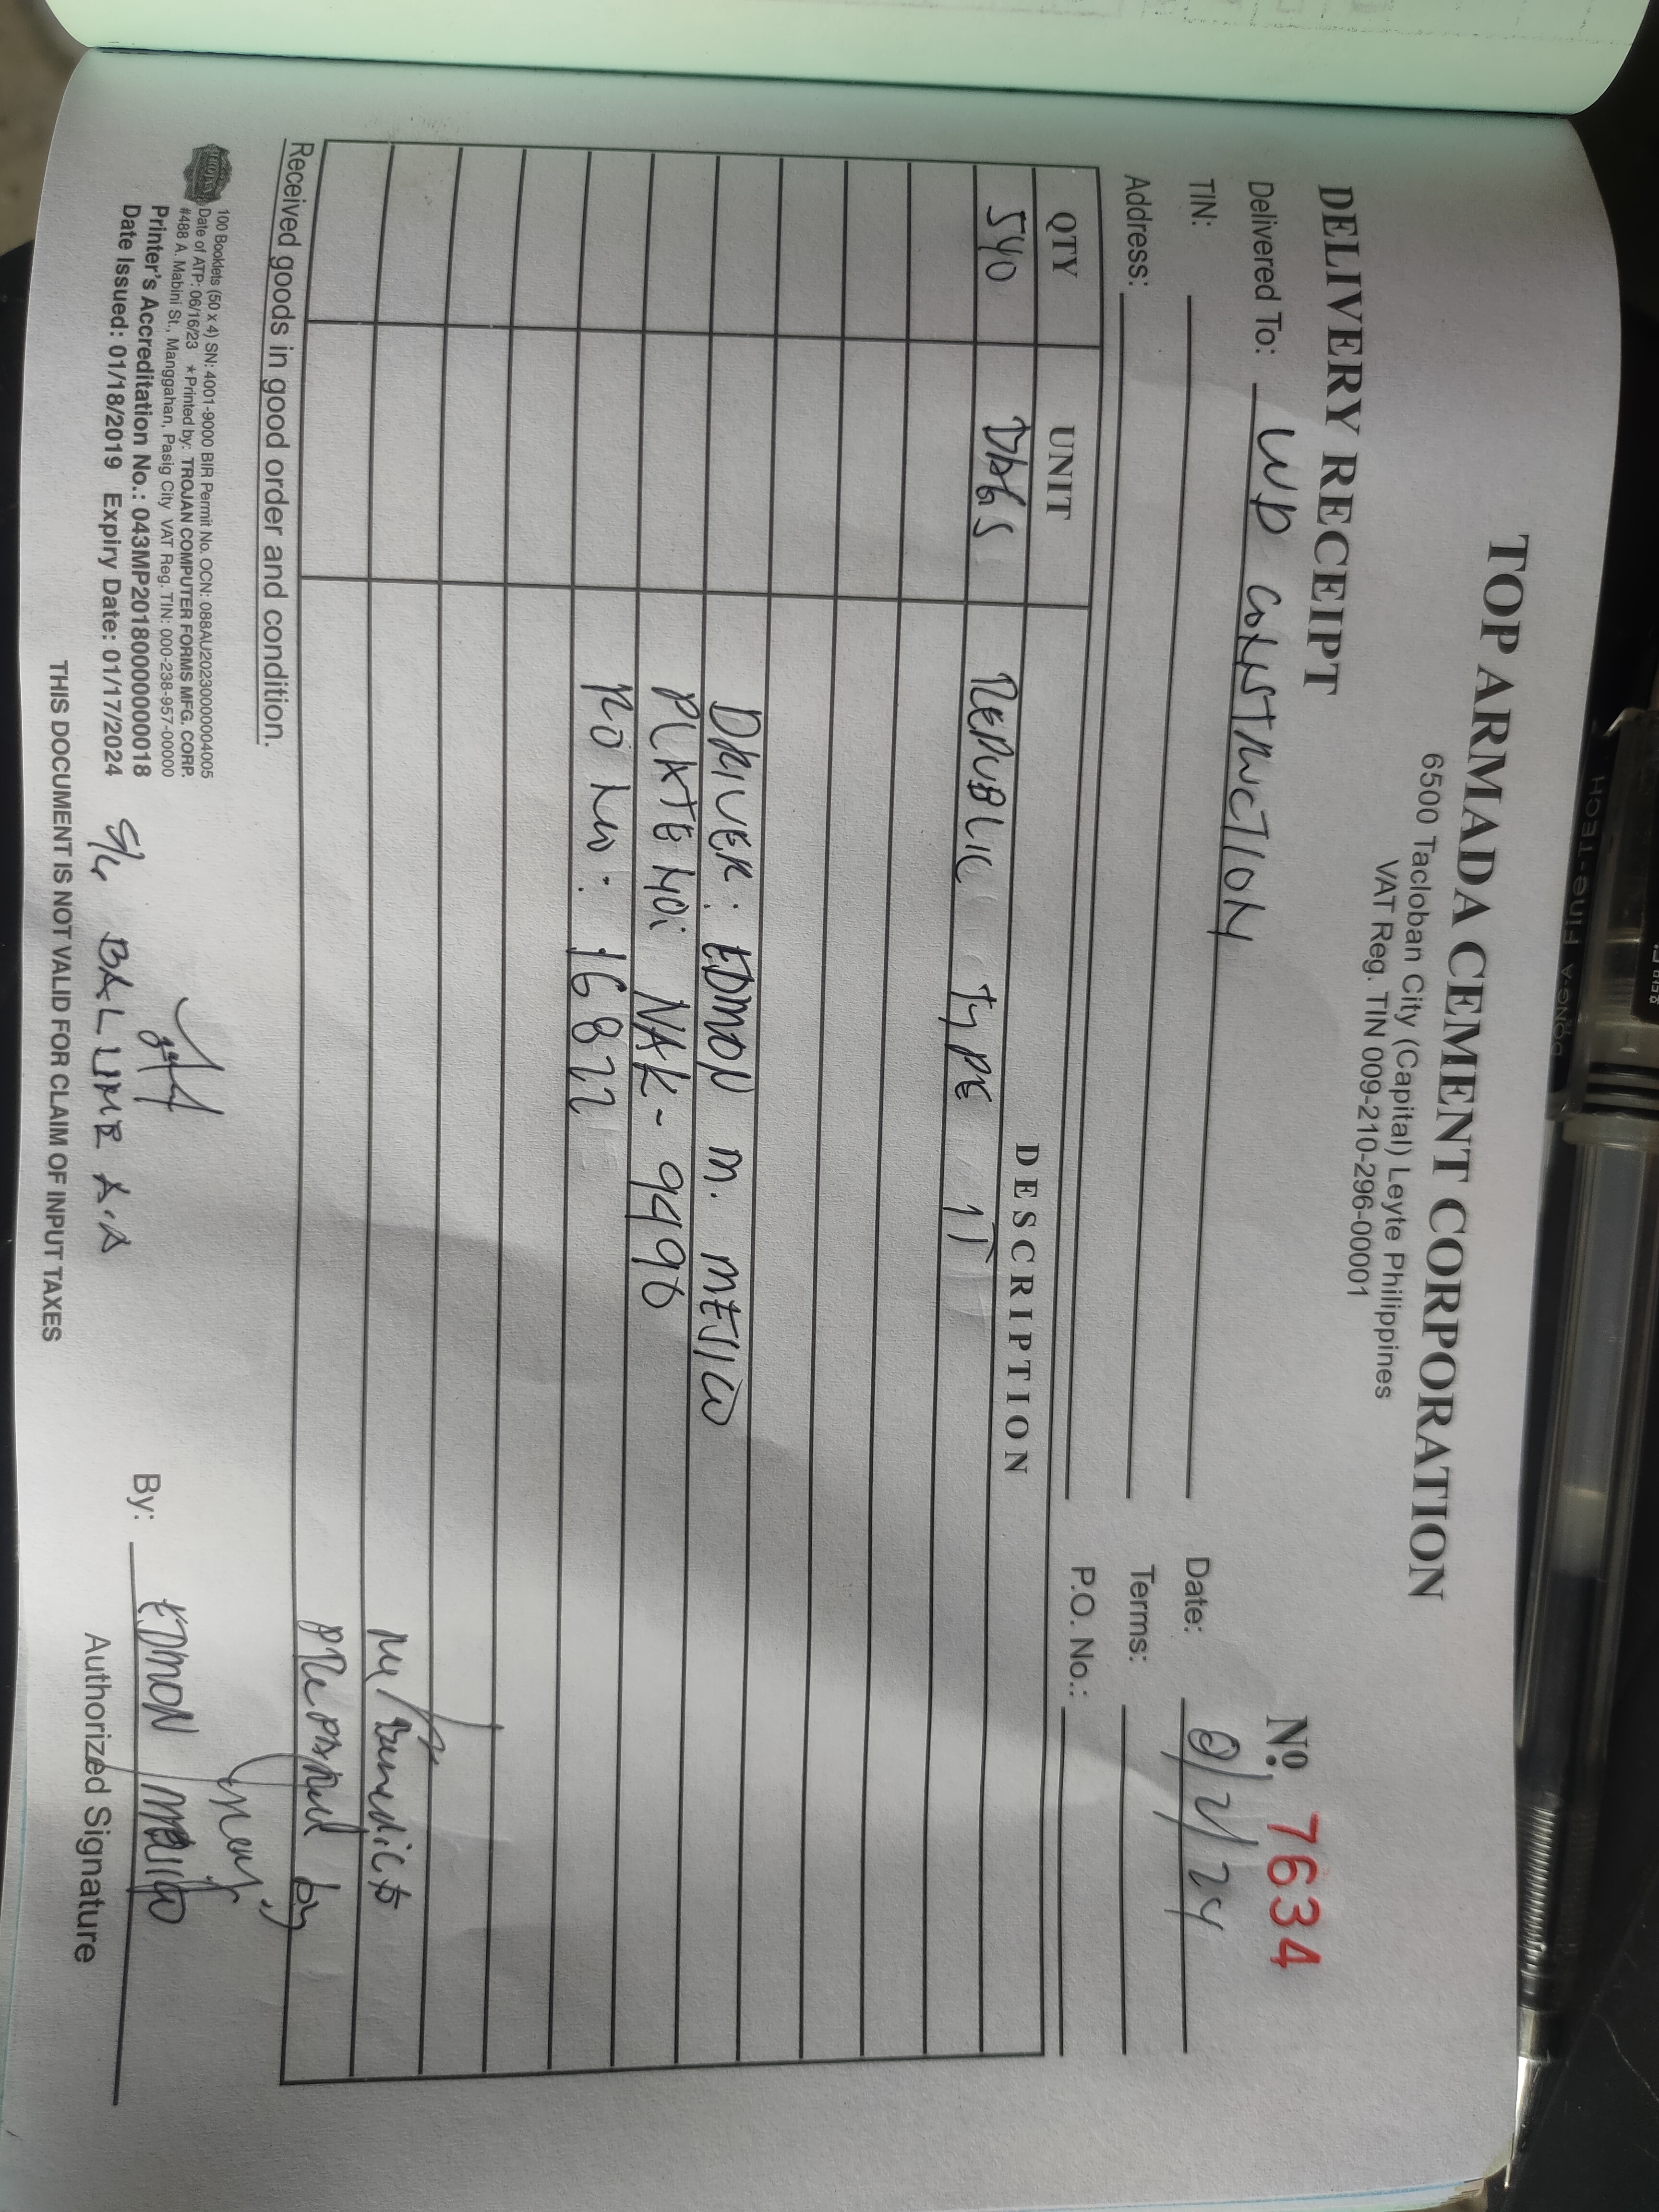 TOP ARMADA CEMENT CORPORATION
6500 Tacloban City (Capital) Leyte Philippines
VAT Reg. TIN 009-210-296-00001
DELIVERY RECEIPT
Nº 7634
Delivered To: WD CONSTRUCTION
Date: 2/24
TIN:
Terms:
Address:
P.O. No.:
QTY UNIT DESCRIPTION
540 BAGS REPUBLIC TYPE 1T
DRIVER: EDMON M. MEJICO
PLATE NO: NAK-9496
RO NO: 16822
Benedicto
prepared by
Received goods in good order and condition.
100 Booklets (50 x 4) SN: 4001-9000 BIR Permit No. OCN: 088AU20230000004005
Date of ATP: 06/16/23 *Printed by: TROJAN COMPUTER FORMS MFG. CORP.
#488 A. Mabini St., Manggahan, Pasig City VAT Reg. TIN: 000-238-957-00000
Printer's Accreditation No.: 043MP20180000000018
Date Issued: 01/18/2019 Expiry Date: 01/17/2024
S/G BALUME A.A
By: EDMON MEJICO
Authorized Signature
THIS DOCUMENT IS NOT VALID FOR CLAIM OF INPUT TAXES